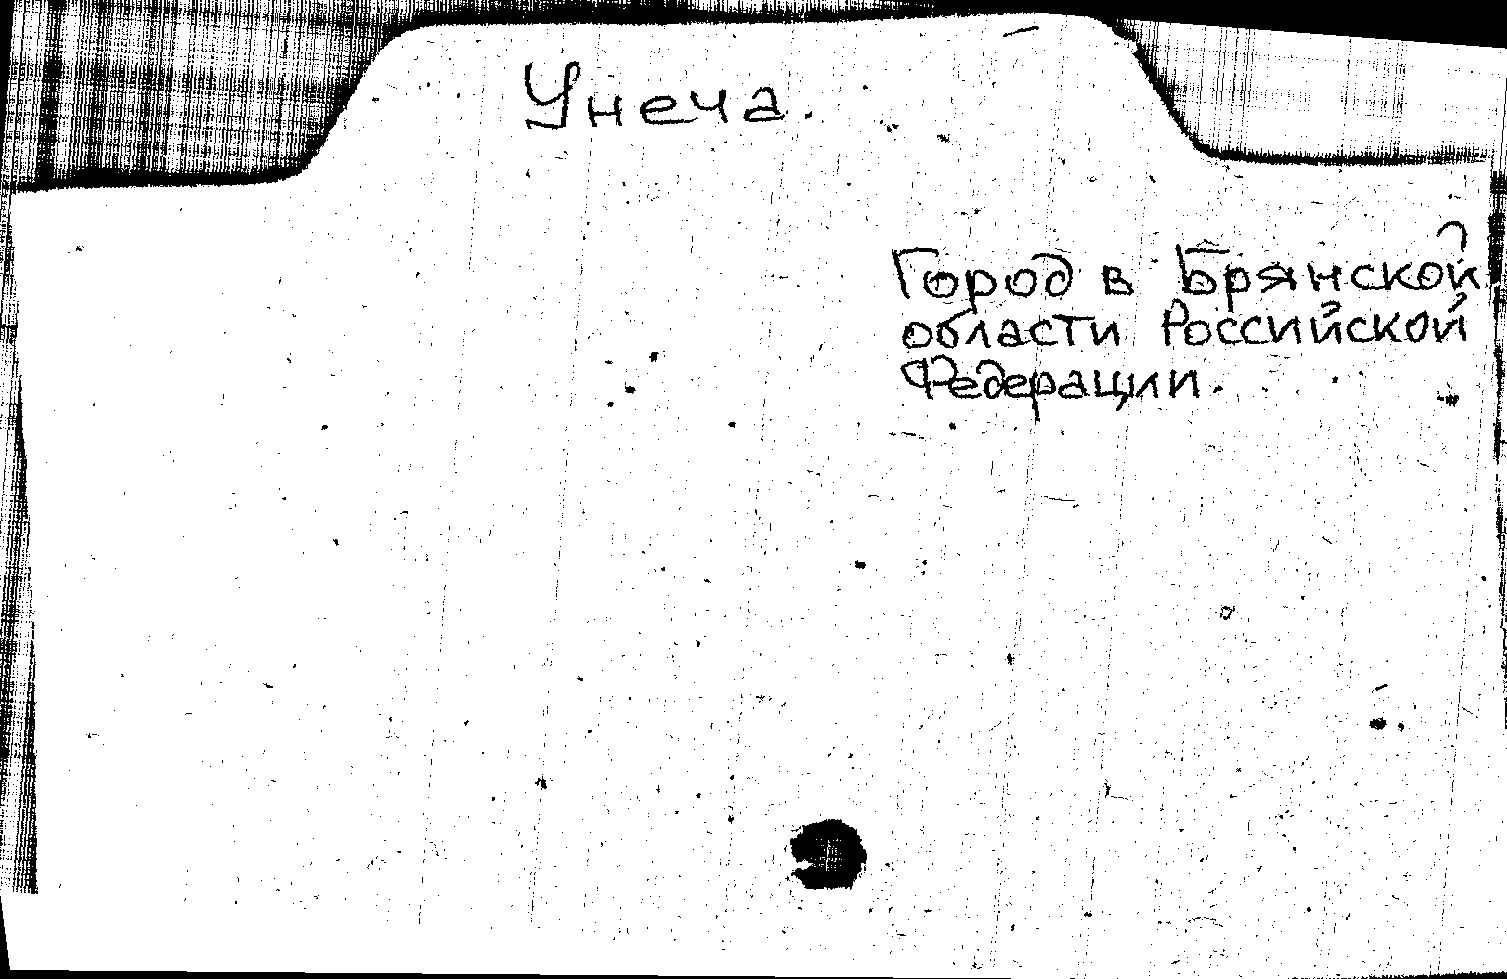 Унеча.
Город в Брянской
области Российской
Федерации.